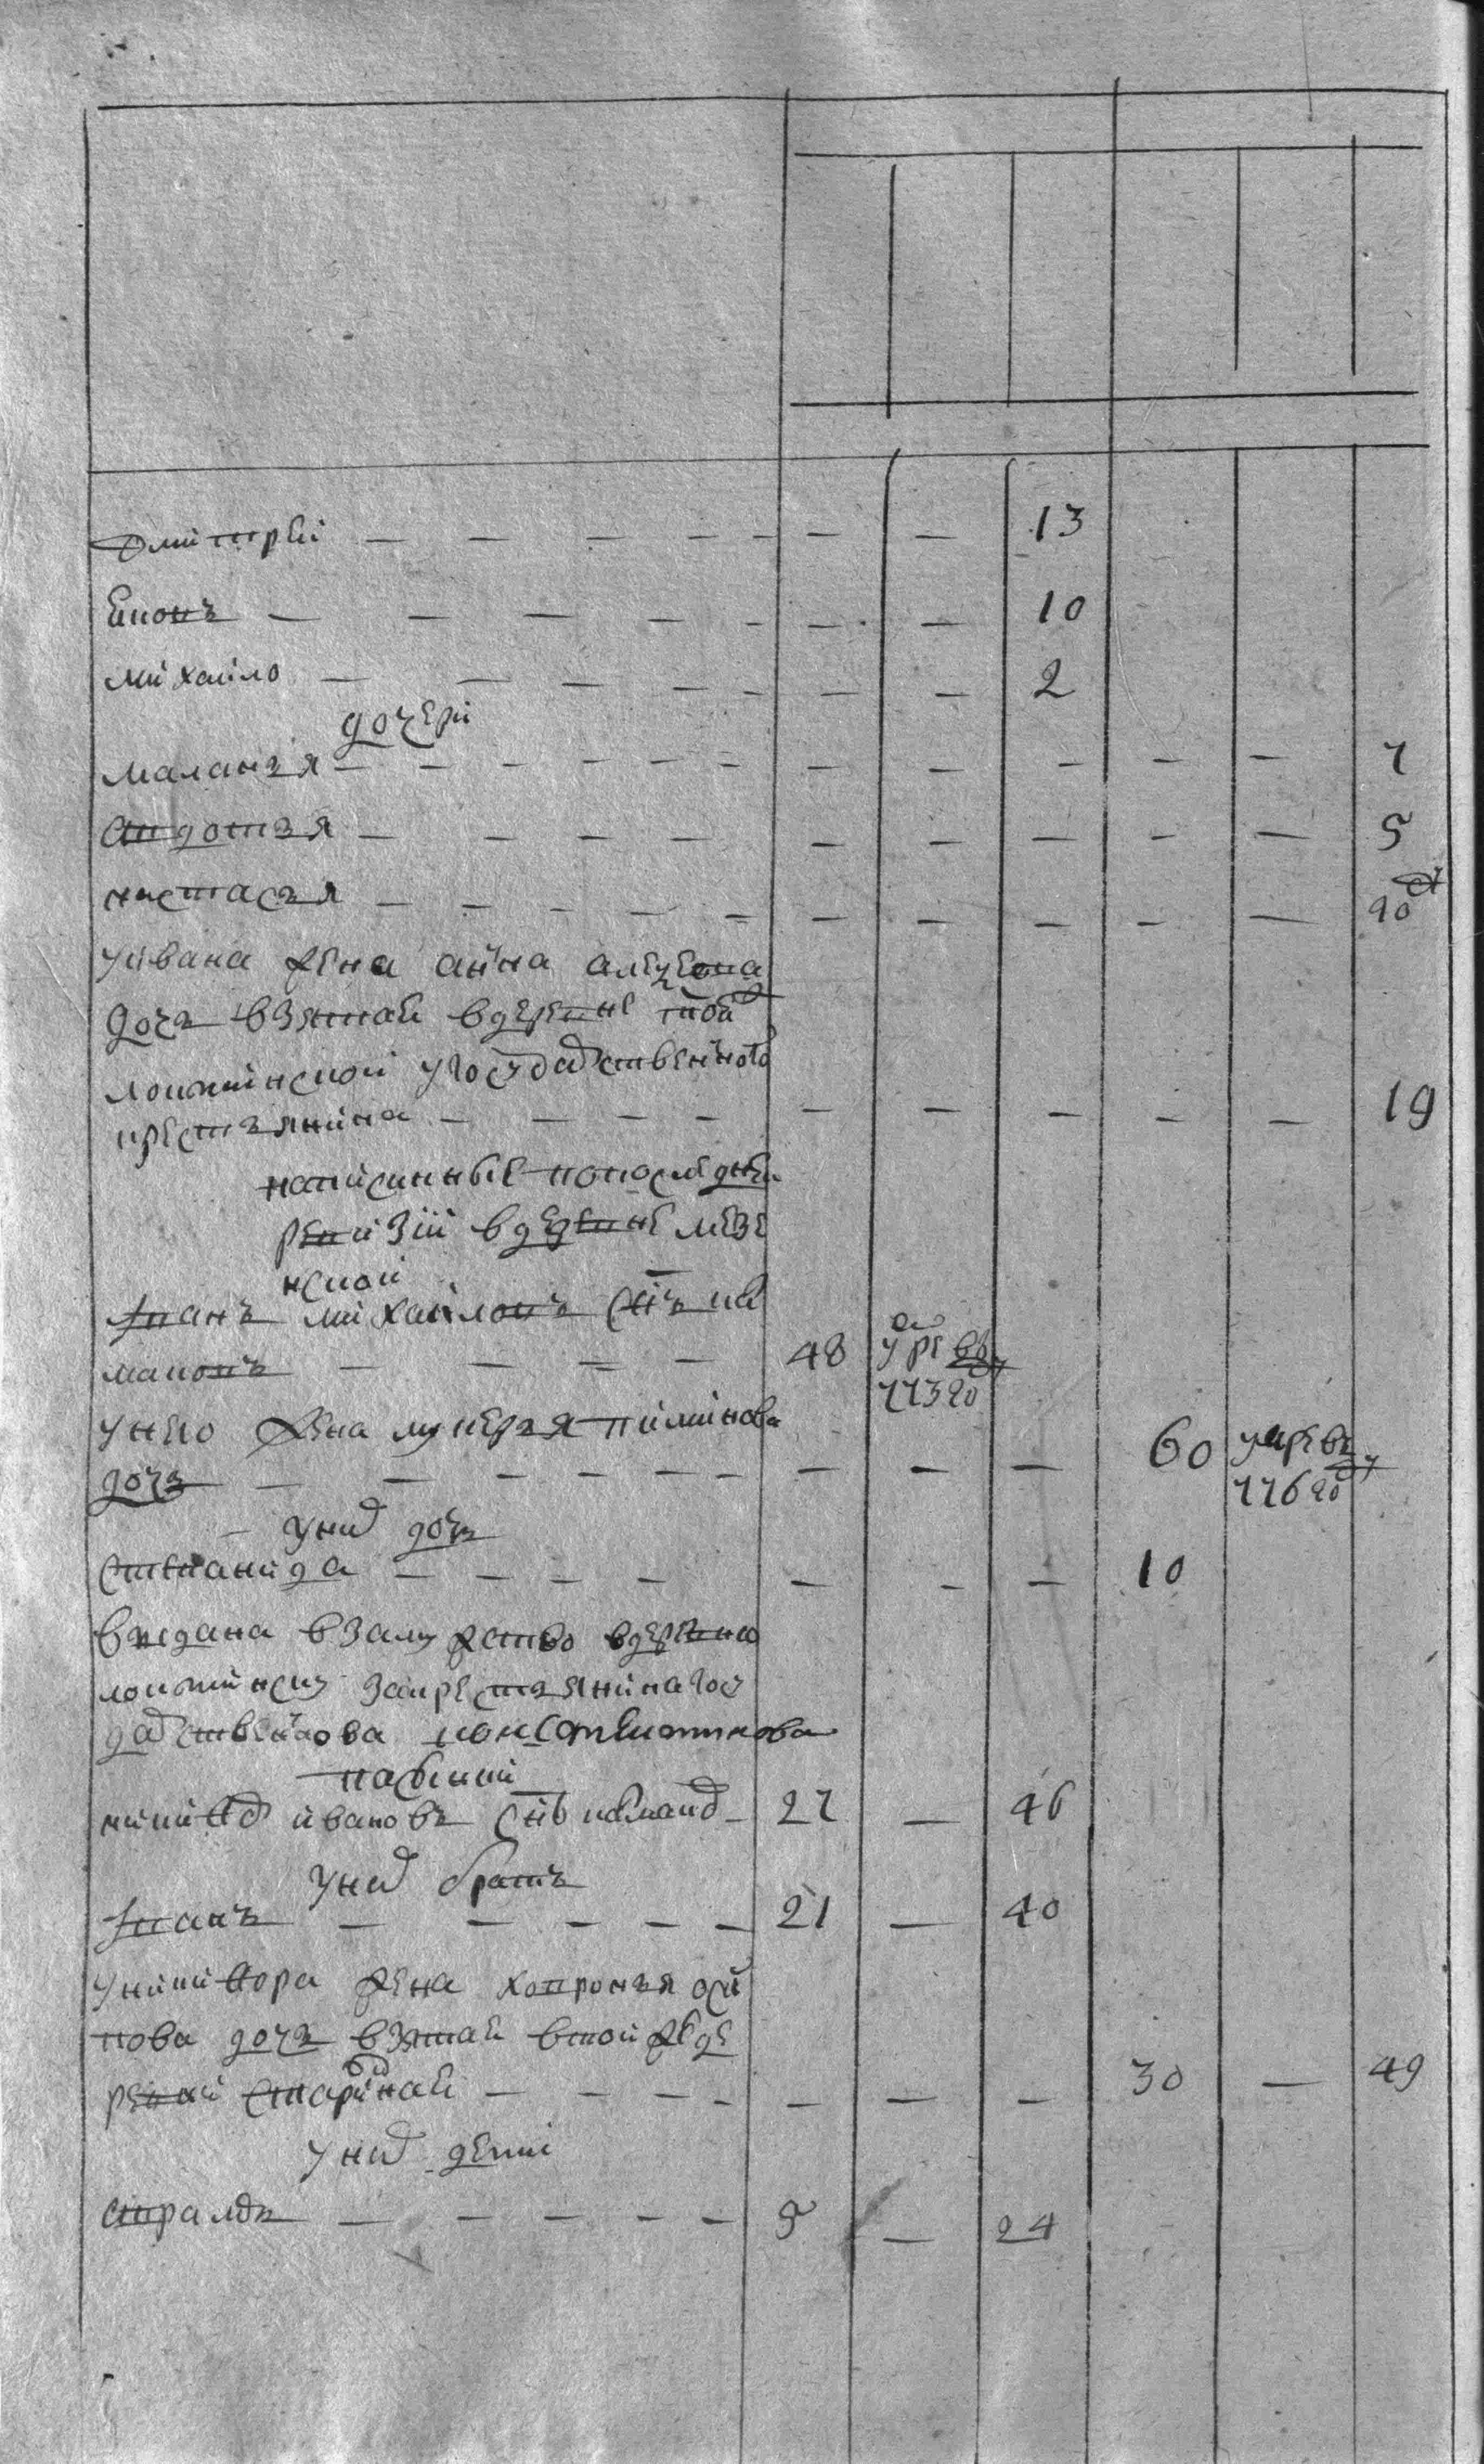 дмитрей — — — — — — 13
Яковъ — — — — — — — 10
михайло — — — — — — — 2
дочери
маланья — — — — — — — — — — — 7
авдотья — — — — — — — — — 5
настасья — — — — — — — — — —
уивана жена анна алеѯеева
дочь взятая вдеревне
локтинской угосударственного
крестьянина — — — — — — — — — 19
написанные попоследней
ревизии вдеревне мезе
нской
Иванъ михайловъ снъ
маковъ — — — — 48 умре въ 773 го
унего жена лукерья пиминова
дочь — — — — — — — — — 60 умре въ 776 го
уних дочь
степанида — — — — — — — 10
выдана взамужство вдеревню
локтинску закрестьянина госу
дарственнова констентинова
никифор ивановъ снъ — 27 — 46
уних братъ
Иванъ — — — — — 21 — 40
уникифора жена хавронья оси
пова дочь взятая втой же де
ревни старинная — — — — — — — 30 — 49
уних дети
— — — — — 5 — 24